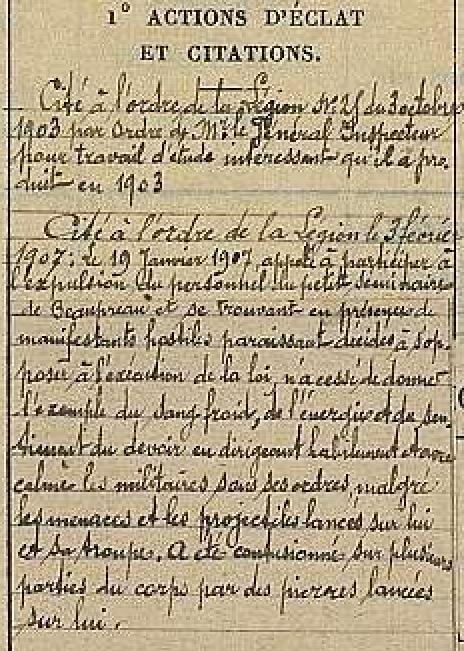 1° ACTIONS D'ÉCLAT
ET CITATIONS.
Cité à l'ordre de la Légion du 3 octobre
1903 par Ordre de Mr le Général Inspecteur
pour travail d'étude intéressant qu'il a pro-
duit en 1903
Cité à l'ordre de la Légion le 3 février
1907: le 19 Janvier 1907 appelé à participer à
l'expulsion du personnel du petit séminaire
de Beaupreau et se trouvant en présence de
manifestants hostiles paraissant décidés à s'op-
poser à l'exécution de la loi, n'a cessé de donner
l'exemple du sang froid, de l'énergie et du sen-
timent du devoir en dirigeant habilement et avec
calme les militaires sous ses ordres, malgré
les menaces et les projectiles lancés sur lui
et sa troupe. A été contusionné sur plusieurs
parties du corps par des pierres lancées
sur lui.